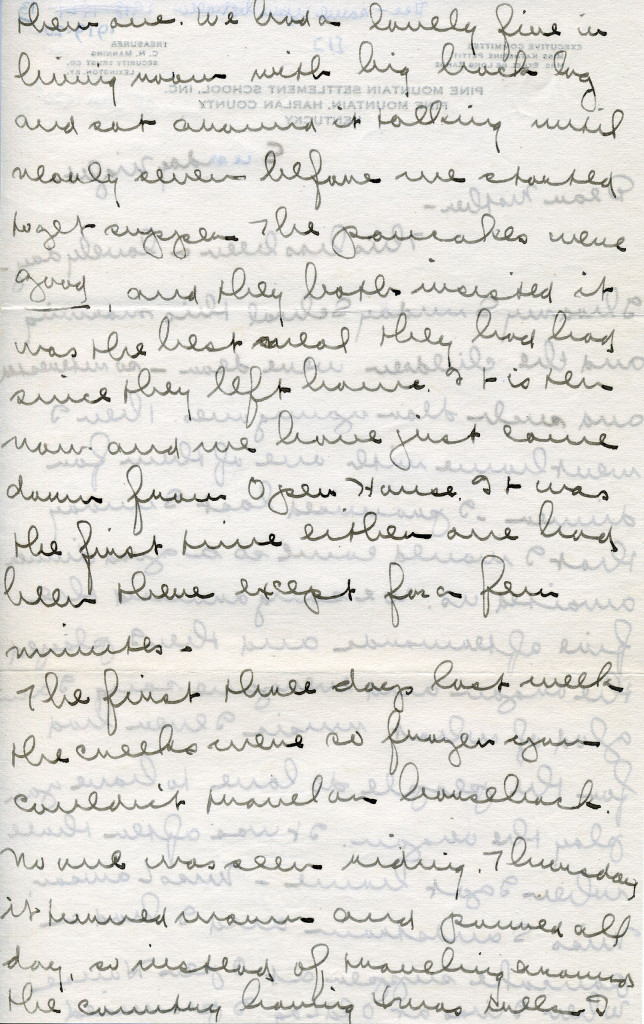 them one. We had a lovely fire in
living room with big back log
and sat around it talking until
nearly seven before we started
to get supper. The pancakes were
good, and they both insisted it
was the best meal they had had
since they left home. It is ten
now and we have just come
down from Open House. It was
the first time either one had
been there except for a few
minutes.
The first three days last week
the creeks were so frozen you
couldn't travel on horseback.
No one was seen riding. Thursday
it turned warm and poured all
day, so instead of traveling around
the country having Xmas I